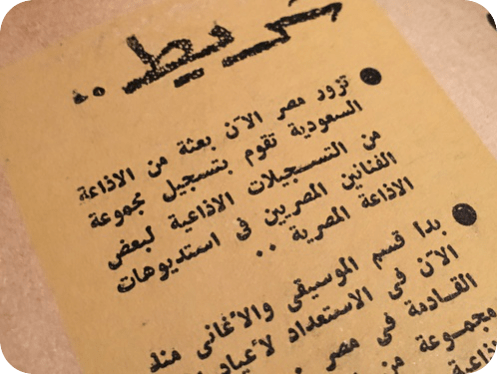 شريط ..
● تزور مصر الآن بعثة من الاذاعة
السعودية تقوم بتسجيل مجموعة
من التسجيلات الاذاعية لبعض
الفنانين المصريين فى استديوهات
الاذاعة المصرية ..
● بدا قسم الموسيقى والأغانى منذ
الآن فى الاستعداد لأعياد
القادمة فى مصر
مجموعة من